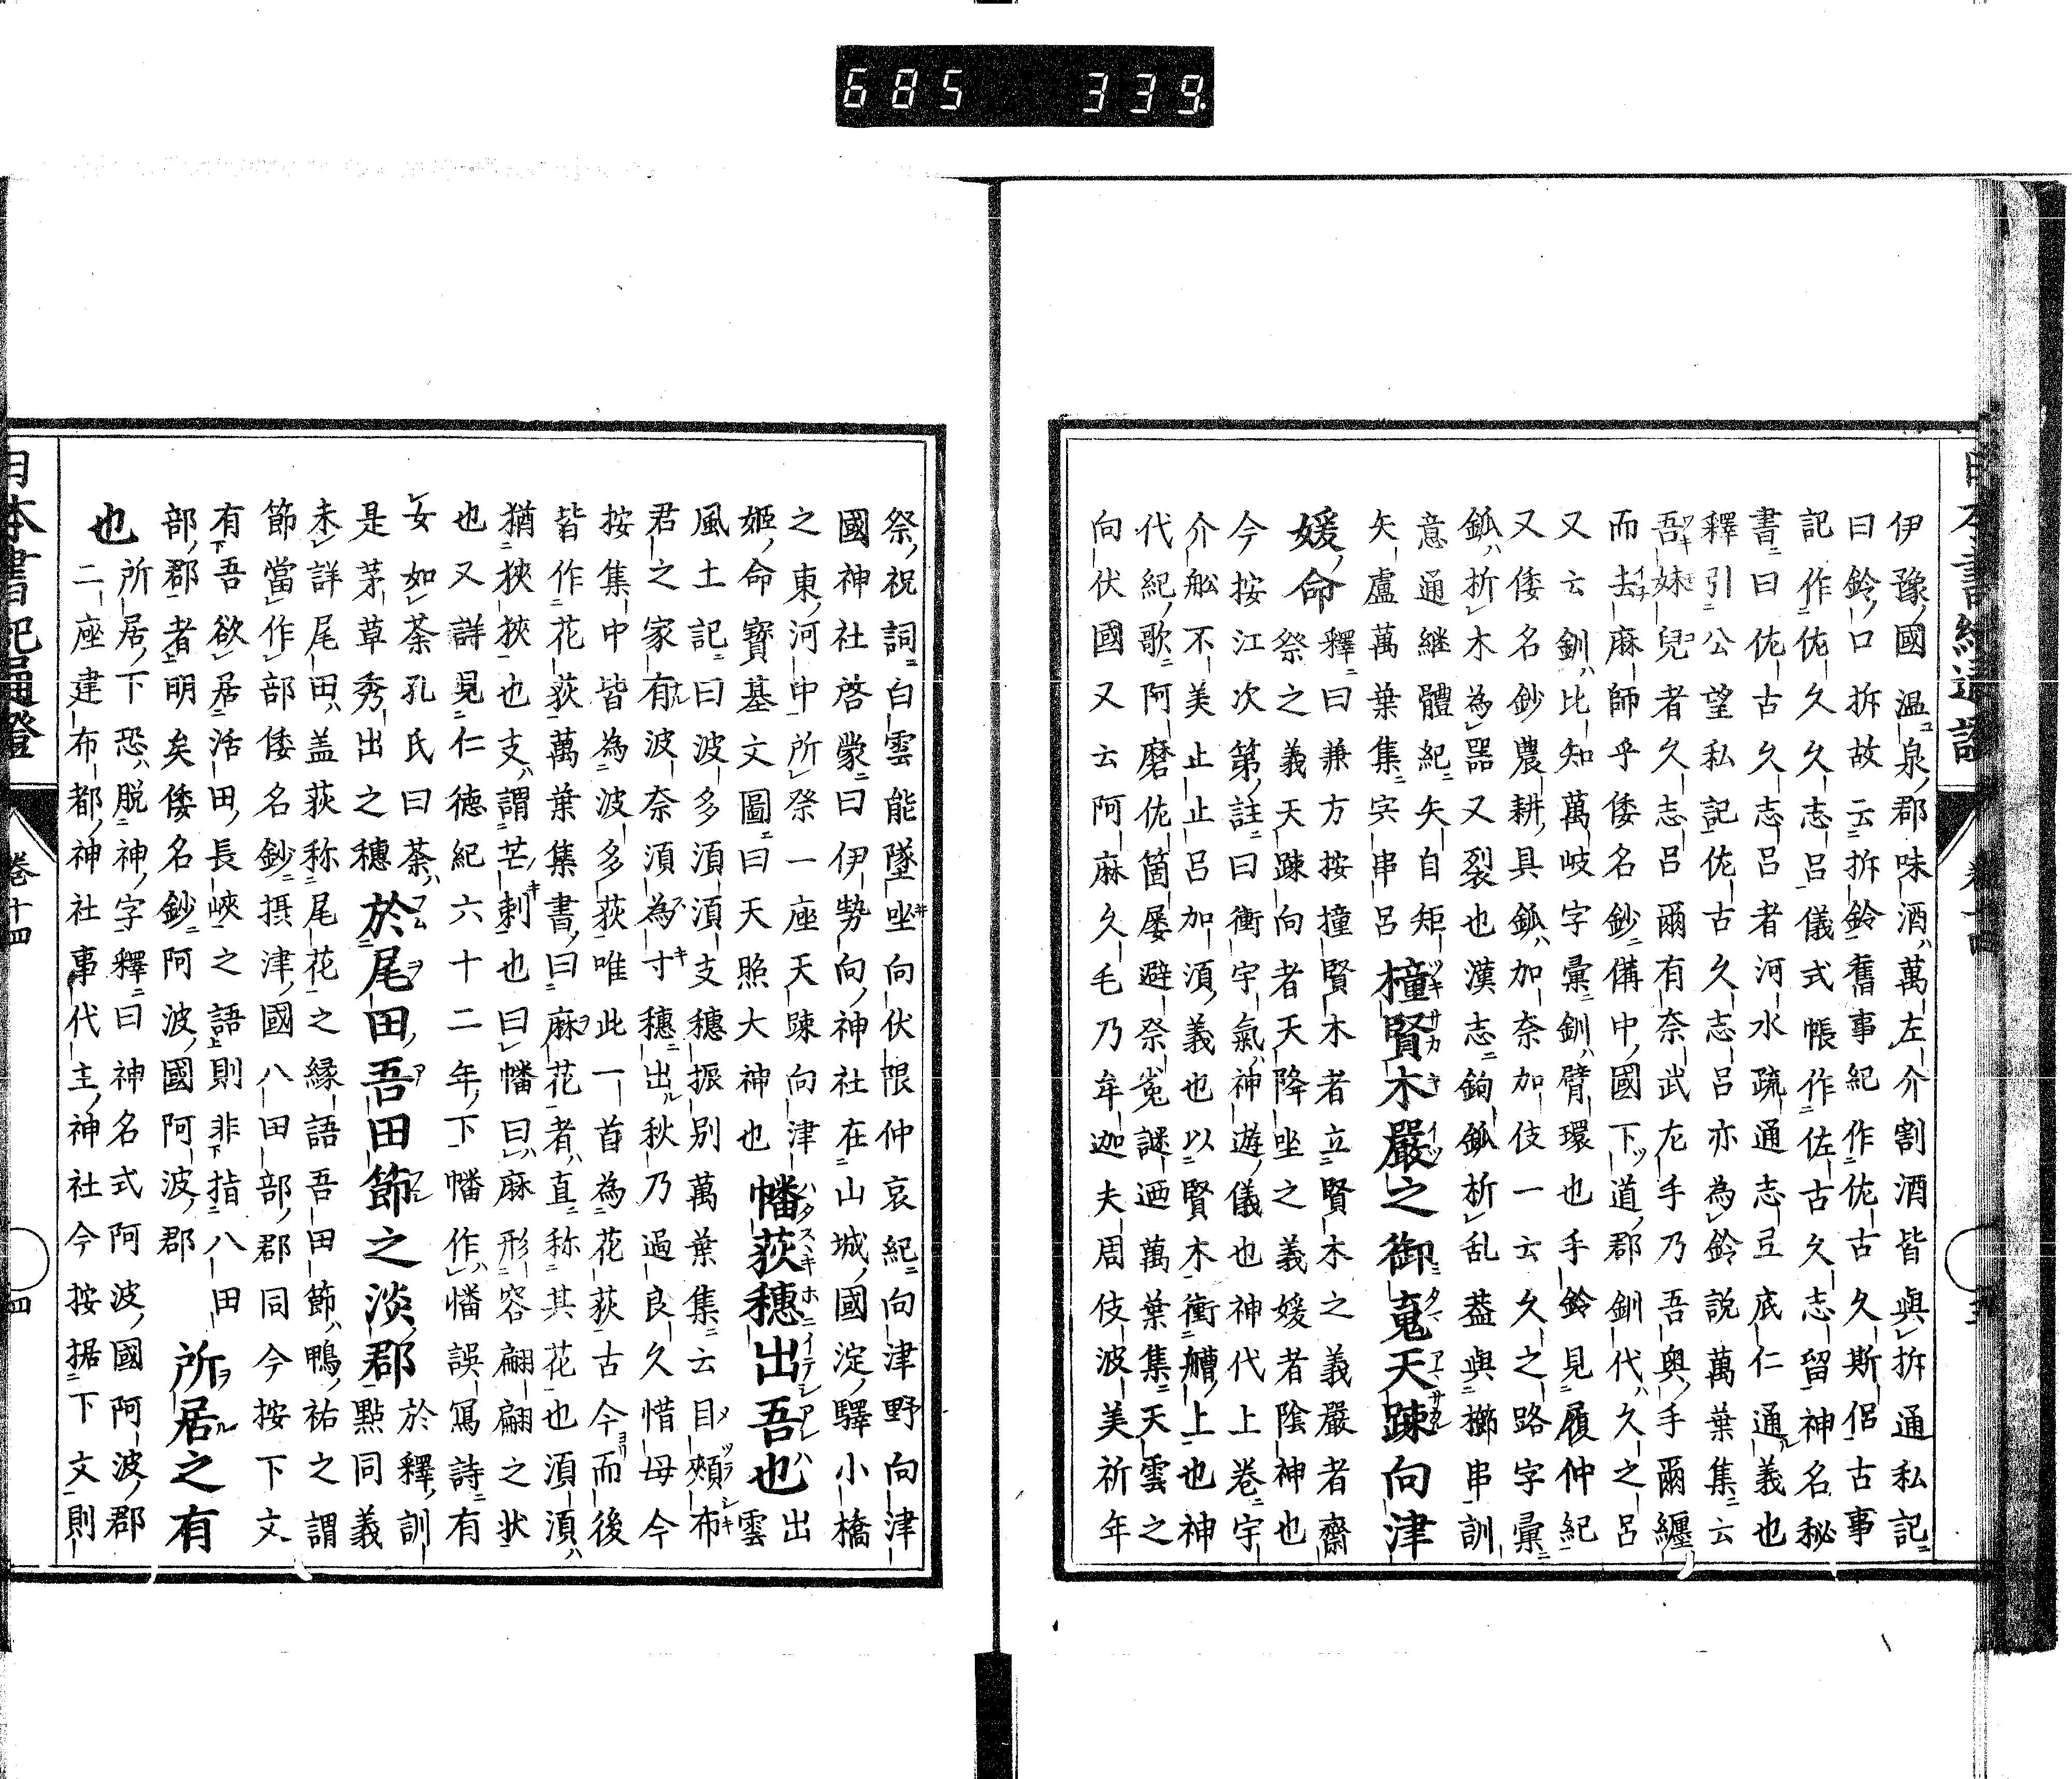 685 339
伊豫國温泉郡味酒萬左介割酒皆與拆通私記
曰鈴口拆故云拆鈴舊事紀作佐古久斯侶古事
記作佐久久志呂儀式帳作佐古久志留神名秘
書曰佐古久志呂者河水疏通志豆底仁通義也
釋引公望私記佐古久志呂亦為鈴説萬葉集云
吾妹兒者久志呂爾有奈武左手乃吾奥手爾纒
而去麻師乎倭名鈔備中國下道郡釧代久之呂
又云釧比知萬岐字彙釧臂環也手鈴見履仲紀
又倭名鈔農耕具鈲加奈加伎一云久之路字彙
鈲折木為器又裂也漢志鉤鈲析乱蓋與擳串訓
意通継體紀矢自矩
矢盧萬葉集字串呂
撞賢木嚴之御䰟天踈向津
媛命
釋曰兼方按撞賢木者立賢木之義嚴者齋
祭之義天踈向者天降坐之義媛者陰神也
今按江次第註曰衝宇氣神遊儀也神代上巻宇
介舩不美止止呂加須義也以賢木衝艚上也神
代紀歌阿磨佐箇屢避奈菟謎迺萬葉集天雲之
向伏國又云阿麻久毛乃牟迦夫周伎波美祈年
祭祝詞白雲能墜坐向伏限仲哀紀向津野向津
國神社啓蒙曰伊勢向神社在山城國淀驛小橋
之東河中所祭一座天踈向津
姫命寳基文圖曰天照大神也
幡荻穗出吾也
出雲
風土記曰波多須須支穗振別萬葉集云目頰布
君之家有波奈須為寸穗出秋乃過良久惜母今
按集中皆為波多荻唯此一首為花荻古今而後
皆作花荻萬葉集書曰麻花者直称其花也須須
猶狹挾也支謂芒刺也曰幡曰麻形容翩翩之状
也又詳見仁德紀六十二年下幡作憣誤寫詩有
女如荼孔氏曰荼
是茅草秀出之穗
於尾田吾田節之淡郡
於釋訓
點同義
未詳尾田盖荻称尾花之縁語吾田節鴨祐之謂
節當作部倭名鈔摂津國八田部郡同今按下文
有吾欲居活田長峽之語則非指八田
部郡者明矣倭名鈔阿波國阿波郡
所居之有
也
所居下恐脱神字釋曰神名式阿波國阿波郡
二座建布都神社事代主神社今按据下文則
日本書紀通證
巻十四
四